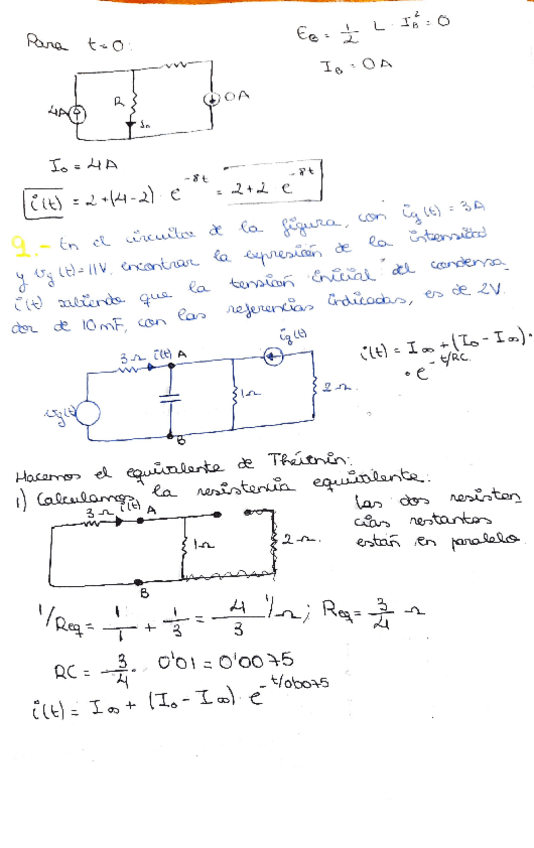 Para t=0:
E_B = 1/2 L · I_B² = 0
I_B = 0A
4A
R
0A
I_0 = 4A
i(t) = 2+(4-2) · e^-8t = 2+2 e^-8t
9.- En el circuito de la figura, con ig(t) = 3A
y vg(t)=11V, encontrar la expresión de la intensidad
i(t) sabiendo que la tensión inicial del condensa
dor de 10mF, con las referencias indicadas, es de 2V.
3Ω i(t) A
ig(t)
vg(t)
1Ω
2Ω
B
i(t) = I∞ + (I_0 - I∞) ·
· e^-t/RC.
Hacemos el equivalente de Thévenin:
1) Calculamos la resistencia equivalente:
3Ω i(t) A
1Ω
2Ω
B
las dos resisten
cias restantes
están en paralelo
1/Req = 1/1 + 1/3 = 4/3 1/Ω ; Req = 3/4 Ω
RC = 3/4 · 0'01 = 0'0075
i(t) = I∞ + (I_0 - I∞) · e^-t/0'0075